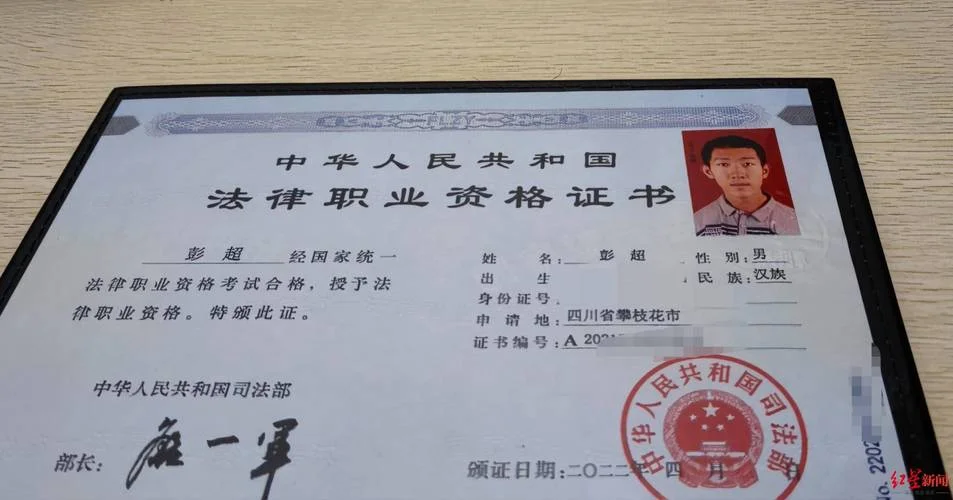 中华人民共和国
法律职业资格证书
彭超 经国家统一
法律职业资格考试合格，授予法
律职业资格。特颁此证。
中华人民共和国司法部
部长：
姓名： 彭超 性别：男
出生 民族：汉族
身份证号
申请地：四川省攀枝花市
证书编号：A 2021
中华人民共和国司法部
颁证日期：二〇二二年四月 日
No. 2202
红星新闻